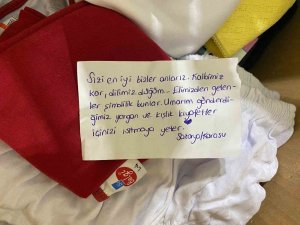 Sizi en iyi bizler anlarız. Kalbimiz
kor, dilimiz düğüm... Elimizden gelen-
ler şimdilik bunlar. Umarım gönderdi-
ğimiz yorgan ve kışlık kıyafetler
içinizi ısıtmaya yeter.
Sakarya/Karasu